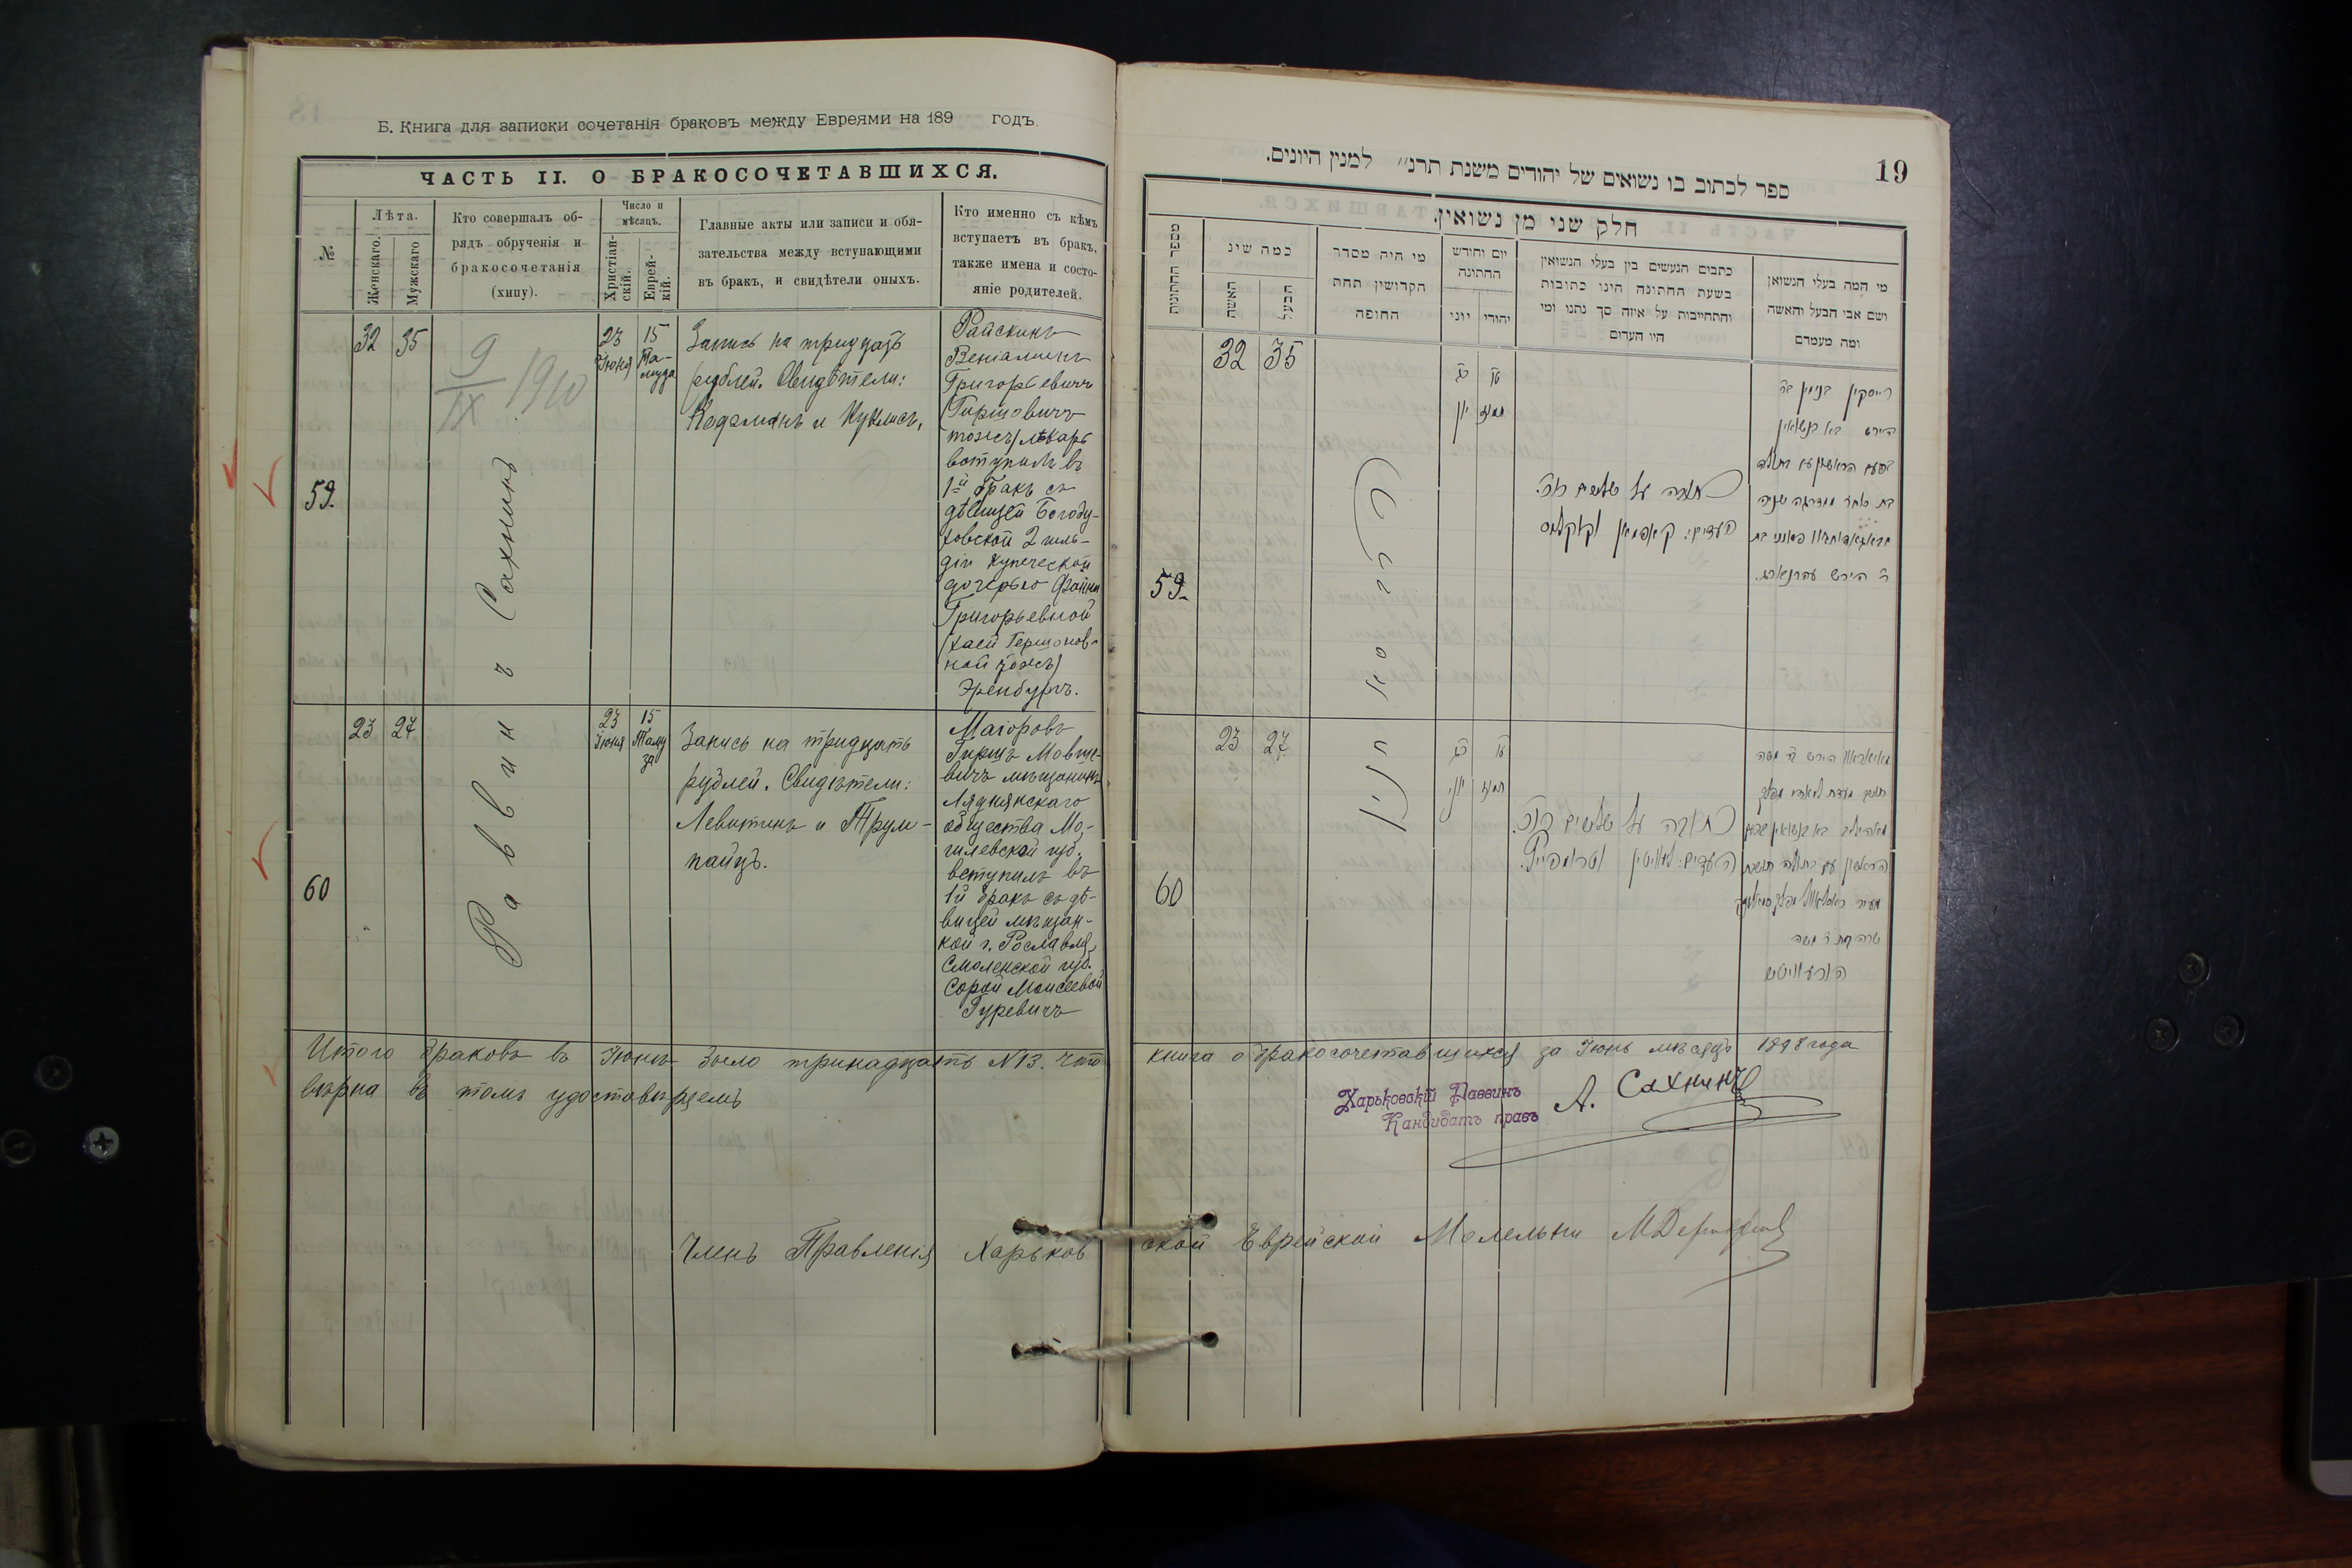 Б. Книга для записки сочетанія браковъ между Евреями на 189 годъ.
ЧАСТЬ II. О БРАКОСОЧЕТАВШИХСЯ.
№
Лѣта.
Женскаго.
Мужскаго
Кто совершалъ об-
рядъ обрученія и
бракосочетанія
(хипу).
Число и
мѣсяцъ.
Христіан-
скій.
Еврей-
кій.
Главные акты или записи и обя-
зательства между вступающими
въ бракъ, и свидѣтели оныхъ.
Кто именно съ кѣмъ
вступаетъ въ бракъ,
также имена и состо-
яніе родителей.
59.
32
35
9/IX 1910
Раввинъ Сахнинъ
23
Іюня
15
Та-
муза
Запись на тридцать
рублей. Свидѣтели:
и Куклисъ.
Райскинъ
Веніаминъ
Григорьевичъ
(Гиршовичъ
тожъ) лѣкарь
вступилъ въ
1й бракъ съ
дѣвицей Богоду-
ховской 2 гиль-
діи купеческой
дочерью Фанни
Григорьевной
(Хаей Гершонов-
ной тожъ)
Эренбургъ.
60
23
27
23
Іюня
15
Таму
за
Запись на тридцать
рублей. Свидѣтели:
Левитинъ и Трум-
пайцъ.
Маіоровъ
Гиршъ Мовше-
вичъ мѣщанинъ
Ляднянскаго
общества Мо-
гилевской губ.
вступилъ въ
1й бракъ съ дѣ-
вицей мѣщан-
кой г. Рославля,
Смоленской губ.
Сорой Моисеевой
Гуревичъ
Итого браковъ въ Іюнѣ было тринадцать №13. Что
вѣрна въ томъ удостовѣряемъ
Членъ Правленія Харьков
19
ספר לכתוב בו נשואים של יהודים משנת תרנ״ למנין היונים.
חלק שני מן נשואין.
מספר החתונות
כמה שינ
האשה
הבעל
מי היה מסדר
הקדושין תחת
החופה
יום וחודש
החתונה
יוני
יהודי
כתבים הנעשים בין בעלי הנשואין
בשעת החתונה הינו כתובות
והתחייבות על איזה סך נתנו ומי
היו העדים
מי המה בעלי הנשואן
ושם אבי הבעל והאשה
ומה מעמדם
59.
32
35
כג
יוני
טו
תמוז
הרב סאחנין
כתובה על שלשים רוכ.
העדים:
רייסקין בנימין בר׳
הירש בא בנשואין
60
23
27
כג
יוני
טו
תמוז
כתובה על שלשים רוכ.
העדים: לעוויטין וטרומפייץ.
שרה בת ר׳ משה
הורעוויטש
книга о бракосочетавшихся за Іюнь мѣсяцъ 1898 года
Харьковскій Раввинъ
Кандидатъ правъ
А. Сахнинъ
ской Еврейской Молельни